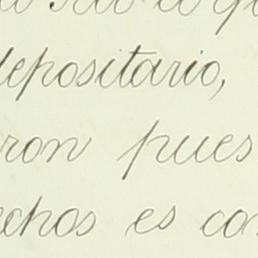 depositario,
ron pues
echos es con